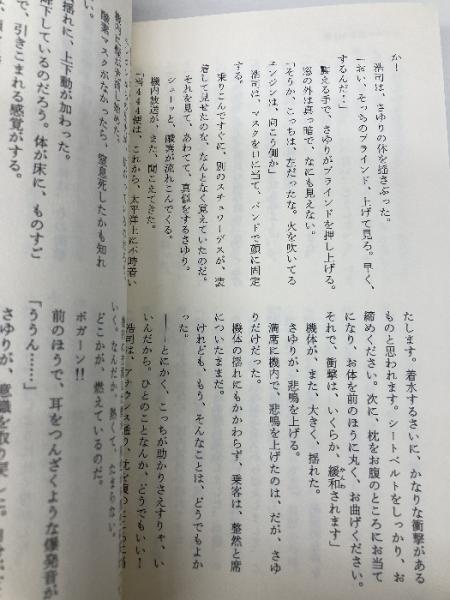 か!
浩司は、さゆりの体を揺さぶった。
「おい、そっちのブラインド、上げて見ろ。早く、
するんだ…」
震える手で、さゆりがブラインドを押し上げる。
窓の外は真っ暗で、なにも見えない。
「そうか、こっちは、左だったな。火を吹いてる
エンジンは、向こう側か」
浩司は、マスクを口に当て、バンドで顔に固定
する。
乗りこんですぐに、別のスチュワーデスが、
して見せたのを、なんとなく覚えていたのだ。
それを見て、あわてて、真似をするさゆり。
シューッと、酸素が流れこんでくる。
機内放送が、また、聞こえてきた。
「444便は、これから、太平洋上に不時着い
たします。着水するさいに、かなりな衝撃がある
ものと思われます。シートベルトをしっかり、お
締めください。次に、枕をお腹のところにお当て
になり、お体を前のほうに丸く、お曲げください。
それで、衝撃は、いくらか、緩和されます」
機体が、また、大きく、揺れた。
さゆりが、悲鳴を上げる。
満席に機内で、悲鳴を上げたのは、だが、さゆ
りだけだった。
機体の揺れにもかかわらず、乗客は、整然と席
についたままだ。
けれども、もう、そんなことは、どうでもよか
った。
――とにかく、こっちが助かりさえすりゃ、い
いんだから。ひとのことなんか、どうでもいい!
浩司は、アナウンス通り、
酸素マスクがなかったら、窒息死したかも知れ
ない。
揺れに、上下動が加わった。
降下しているのだろう。体が床に、ものすご
で、引きこまれる感覚がする。
いく。なんだか、熱くて、たまらない。
どこかが、燃えているのだ。
ボガーン!!
前のほうで、耳をつんざくような爆発音が
「ううん……」
さゆりが、意識を取り戻